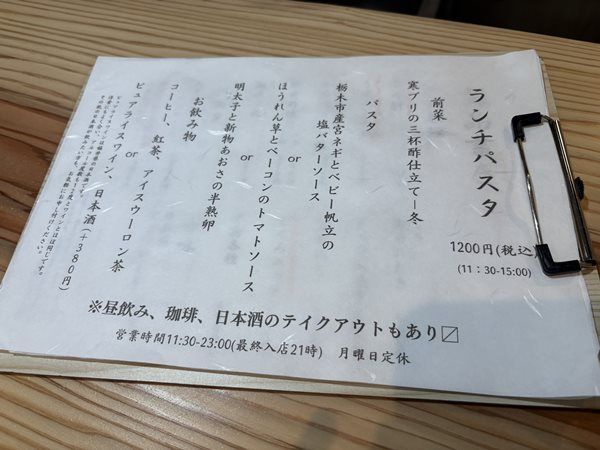 ランチパスタ
1200円(税込)
(11：30-15:00)
前菜
寒ブリの三杯酢仕立て－冬
パスタ
栃木市産宮ネギとベビー帆立の
塩バターソース
or
ほうれん草とベーコンのトマトソース
or
明太子と新物あおさの半熟卵
お飲み物
コーヒー、紅茶、アイスウーロン茶
or
ピュアライスワイン、日本酒(＋380円)
お気軽にお申し付けください。
※昼飲み、珈琲、日本酒のテイクアウトもあり〼
営業時間11:30-23:00(最終入店21時)　月曜日定休